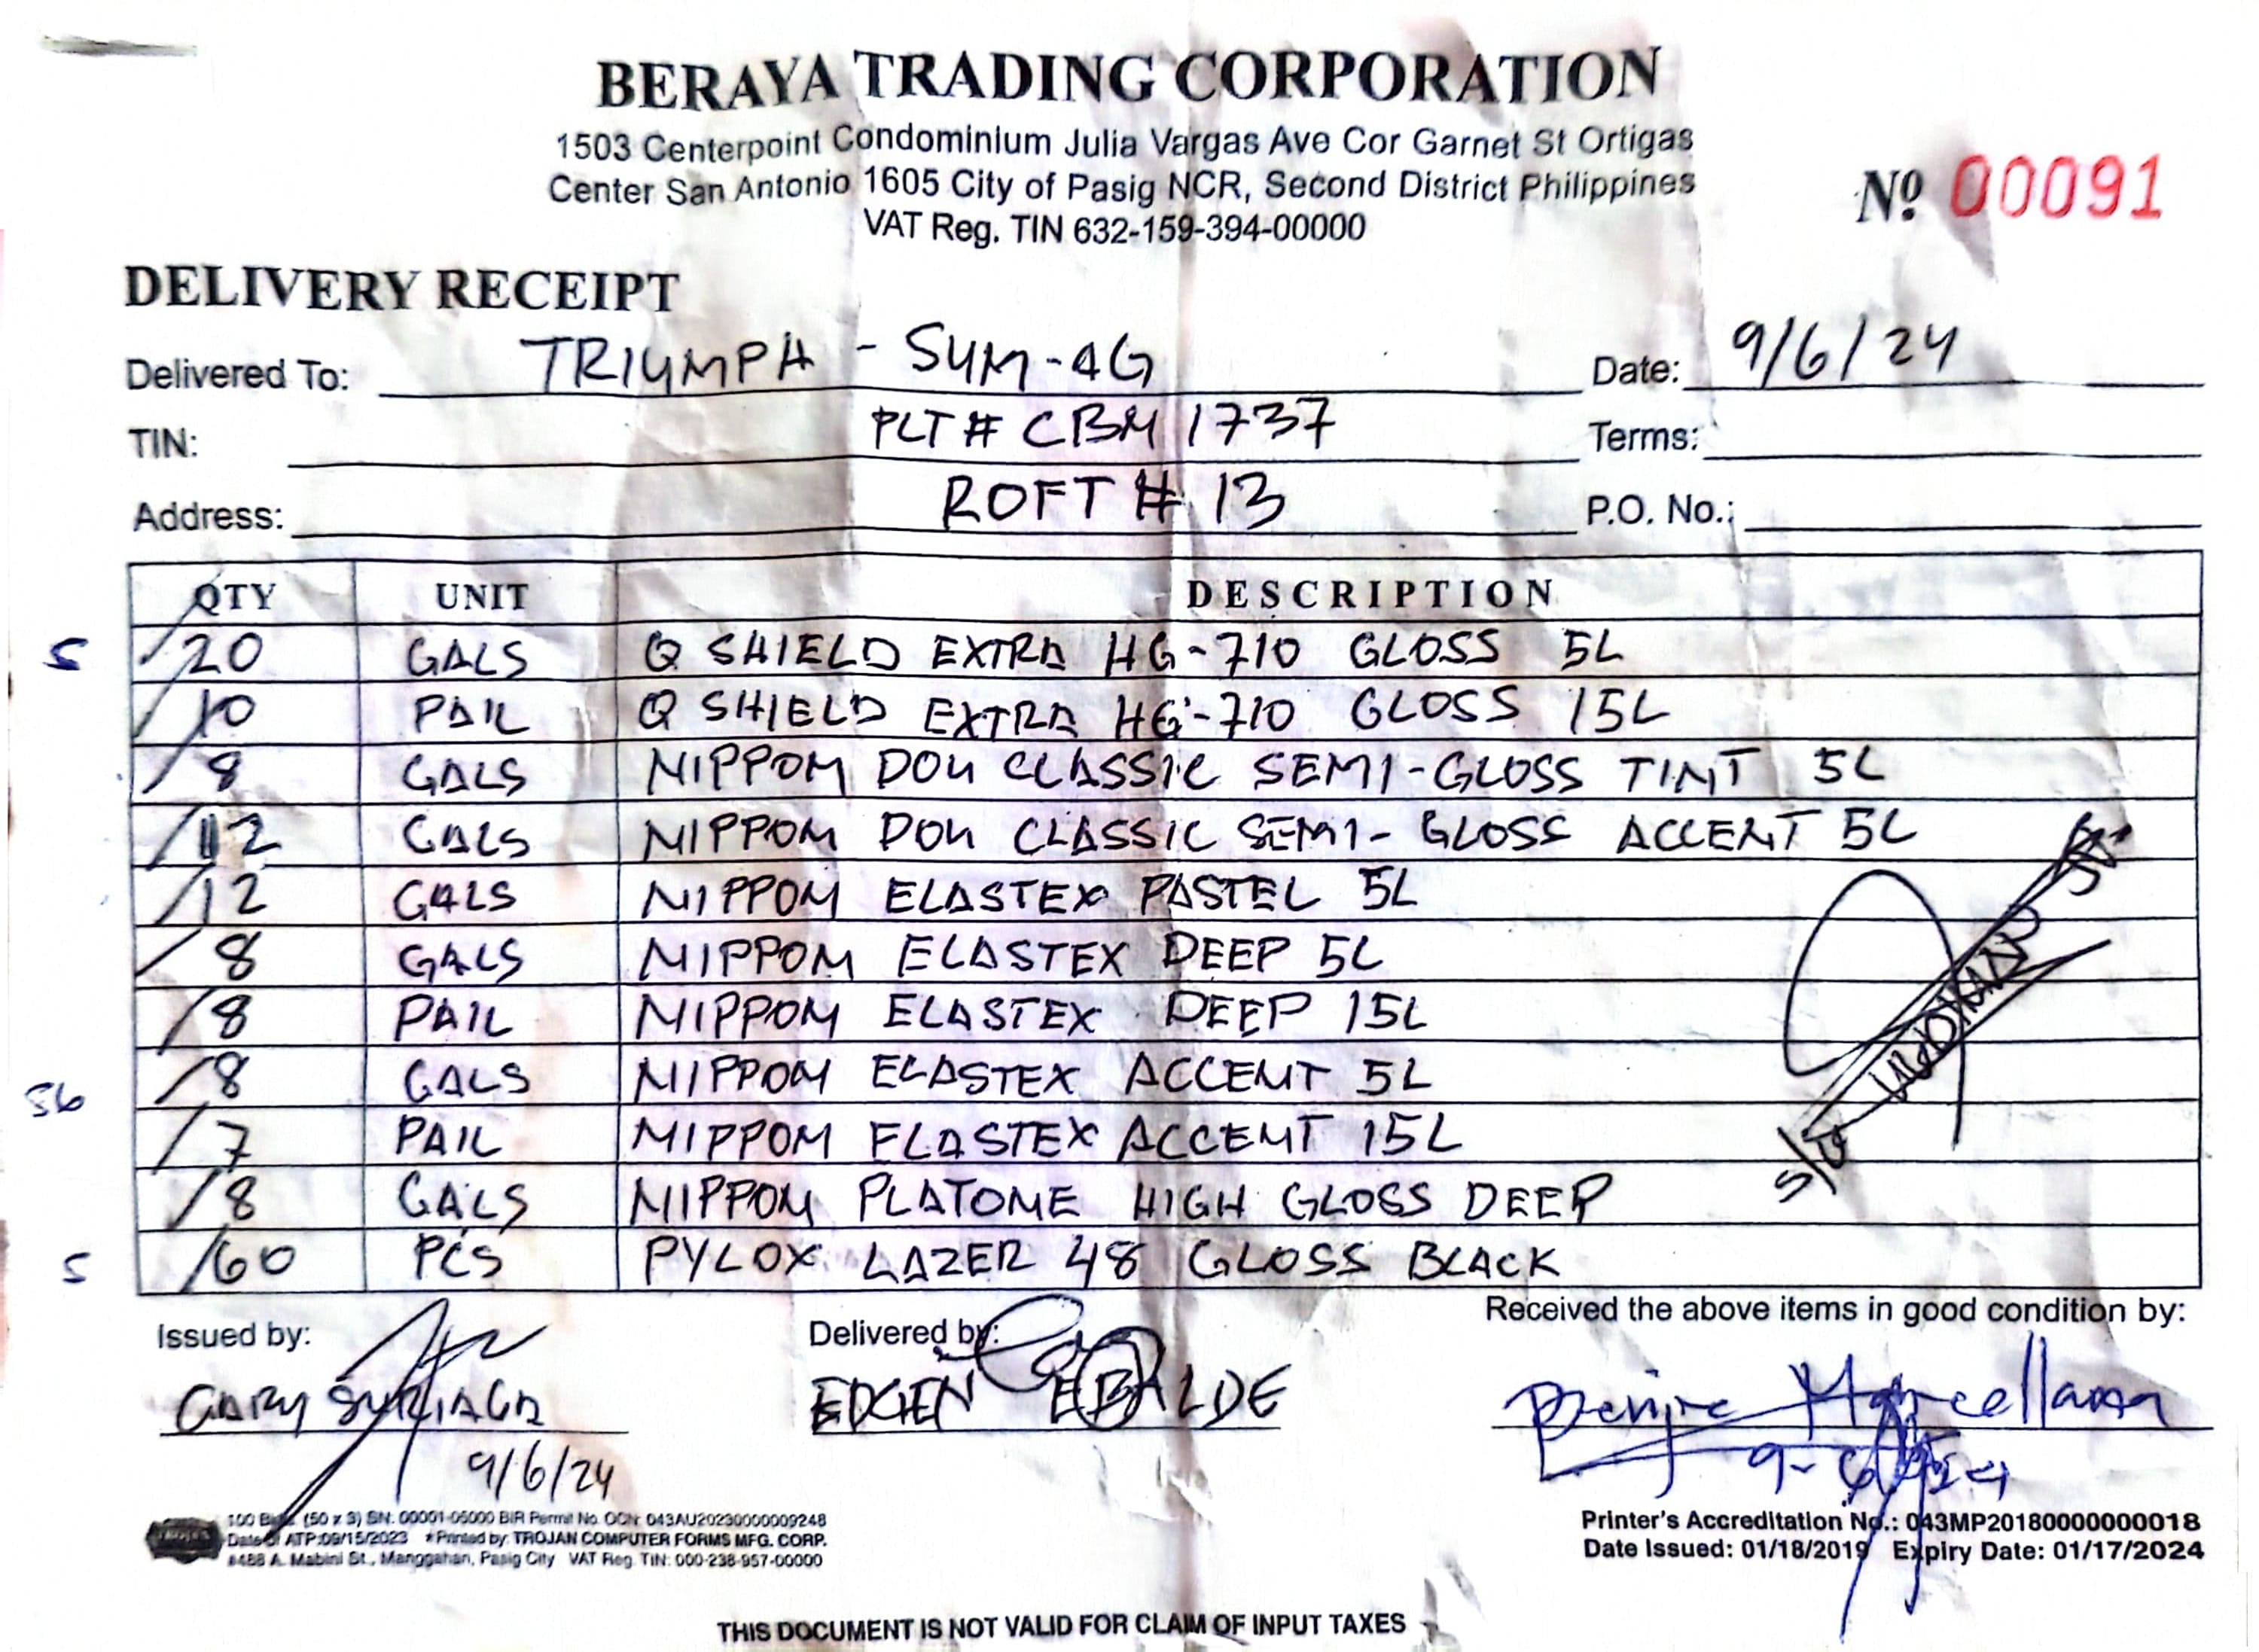 BERAYA TRADING CORPORATION
1503 Centerpoint Condominium Julia Vargas Ave Cor Garnet St Ortigas
Center San Antonio 1605 City of Pasig NCR, Second District Philippines
VAT Reg. TIN 632-159-394-00000
Nº 00091
DELIVERY RECEIPT
Delivered To: TRIUMPH - SUM-4G Date: 9/6/24
TIN: PLT # CBM 1737 Terms:
Address: ROFT # 13 P.O. No.:
QTY UNIT DESCRIPTION
5 20 GALS Q SHIELD EXTRA HG-710 GLOSS 5L
10 PAIL Q SHIELD EXTRA HG-710 GLOSS 15L
8 GALS NIPPON DOU CLASSIC SEMI-GLOSS TINT 5L
12 GALS NIPPON DOU CLASSIC SEMI-GLOSS ACCENT 5L
12 GALS NIPPON ELASTEX PASTEL 5L
8 GALS NIPPON ELASTEX DEEP 5L
8 PAIL NIPPON ELASTEX DEEP 15L
56 8 GALS NIPPON ELASTEX ACCENT 5L
7 PAIL NIPPON ELASTEX ACCENT 15L
8 GALS NIPPON PLATONE HIGH GLOSS DEEP
5 60 PCS PYLOX LAZER 48 GLOSS BLACK
Issued by: Delivered by: Received the above items in good condition by:
GARY EDGEN EBALDE Marcellana
9/6/24
100 (50 x 3) SN: 00001-05000 BIR Permit No. OCN: 043AU20230000009248
Date of ATP:09/15/2023 *Printed by: TROJAN COMPUTER FORMS MFG. CORP.
#488 A. Mabini St., Manggahan, Pasig City VAT Reg. TIN: 000-238-957-00000
Printer's Accreditation No.: 043MP20180000000018
Date Issued: 01/18/2019 Expiry Date: 01/17/2024
THIS DOCUMENT IS NOT VALID FOR CLAIM OF INPUT TAXES